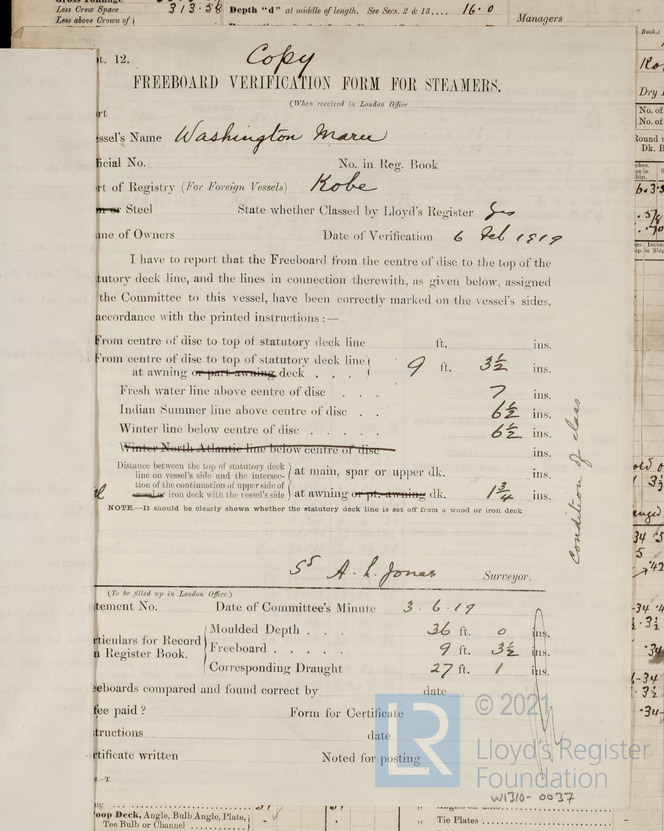 Gross Tonnage
Less Crew Space 313.58 Depth "d" at middle of length. See Secs. 2 & 13 .... 16.0
Less above Crown of
Managers
t. 12.
Copy
FREEBOARD VERIFICATION FORM FOR STEAMERS.
(When received in London Office
rt
ssel's Name Washington Maru
ficial No. No. in Reg. Book
rt of Registry (For Foreign Vessels) Kobe
or Steel State whether Classed by Lloyd's Register Yes
me of Owners Date of Verification 6 Feb 1919
I have to report that the Freeboard from the centre of disc to the top of the
tutory deck line, and the lines in connection therewith, as given below, assigned
the Committee to this vessel, have been correctly marked on the vessel's sides,
accordance with the printed instructions :—
From centre of disc to top of statutory deck line ft. ins.
From centre of disc to top of statutory deck line
at awning or part awning deck . . . 9 ft. 3½ ins.
Fresh water line above centre of disc . . 7 ins.
Indian Summer line above centre of disc . . 6½ ins.
Winter line below centre of disc . . . . . 6½ ins.
Winter North Atlantic line below centre of disc ins.
Distance between the top of statutory deck
line on vessel's side and the intersec-
tion of the continuation of upper side of
wood or iron deck with the vessel's side
at main, spar or upper dk. ins.
at awning or pt. awning dk. 1¾ ins.
NOTE.—It should be clearly shown whether the statutory deck line is set off from a wood or iron deck
Condition of class
Sd A. L. Jones Surveyor.
(To be filled up in London Office.)
tement No. Date of Committee's Minute 3.6.19
rticulars for Record
n Register Book.
Moulded Depth . . . 36 ft. 0 ins.
Freeboard . . . . . 9 ft. 3½ ins.
Corresponding Draught 27 ft. 1 ins.
eeboards compared and found correct by date
fee paid ? Form for Certificate
tructions date
rtificate written Noted for posting
.—T.
© 2021
LR
Lloyd's Register
Foundation
W1310-0037
oop Deck, Angle, Bulb Angle, Plate,
Tee Bulb or Channel
Tie Plates